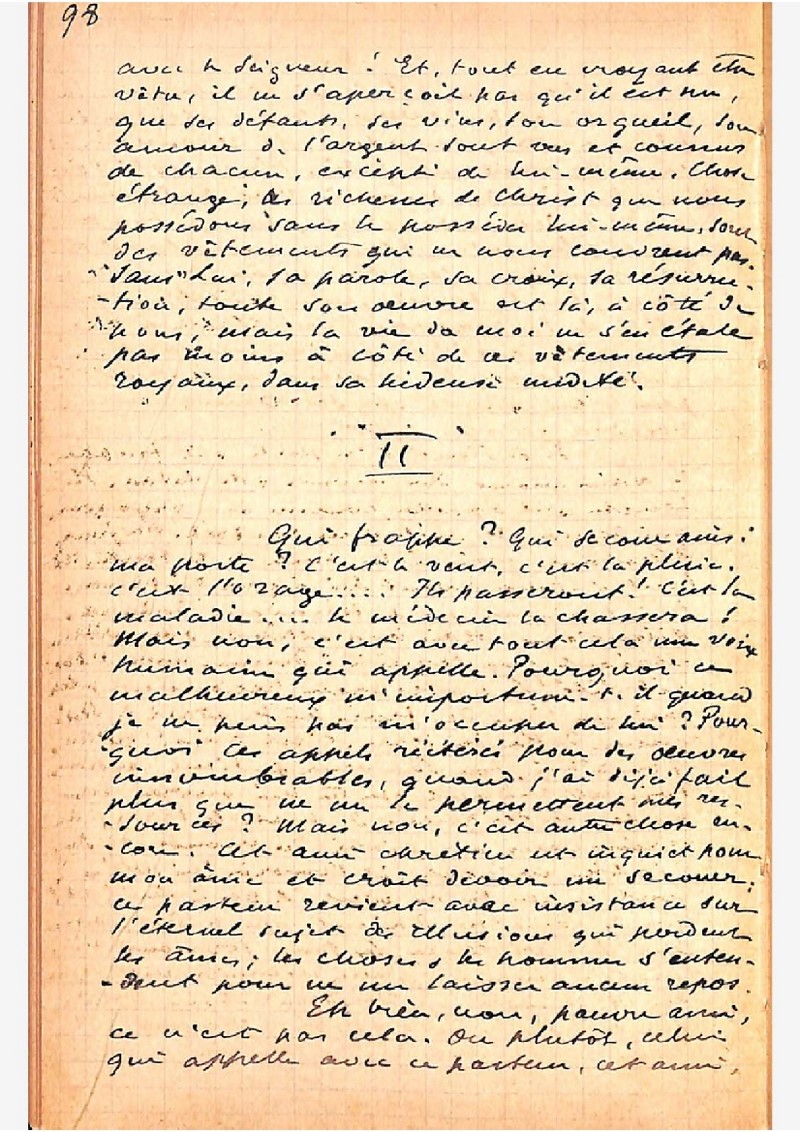 98
avec le Seigneur ! Et, tout en croyant être
vêtu, il ne s'aperçoit pas qu'il est nu,
que ses défauts, ses vices, son orgueil, son
amour de l'argent sont vus et connus
de chacun, excepté de lui-même. Chose
étrange, les richesses de Christ que nous
possédons sans le posséder lui-même, sont
des vêtements qui ne nous couvrent pas.
Sans Lui, sa parole, sa croix, sa résurrec-
-tion, toute son œuvre est là, à côté de
nous, mais la vie du moi ne s'en étale
pas moins à côté de ces vêtements
royaux, dans sa hideuse nudité.
II
Qui frappe ? Qui secoue ainsi
ma porte ? C'est le vent, c'est la pluie.
c'est l'orage.... Ils passeront ! C'est la
maladie.... le médecin la chassera !
Mais non, c'est avec tout cela une voix
humaine qui appelle. Pourquoi ce
malheureux m'importune-t-il quand
je ne puis pas m'occuper de lui ? Pour-
-quoi ces appels réitérés pour des œuvres
innombrables, quand j'ai déjà fait
plus que ne me le permettent mes res-
-sources ? Mais non, c'est autre chose en-
-core. Cet ami chrétien est inquiet pour
mon âme et croit devoir me secouer ;
ce pasteur revient avec insistance sur
l'éternel sujet des illusions qui perdent
les âmes ; les choses & les hommes s'enten-
-dent pour ne me laisser aucun repos.
Eh bien, non, pauvre ami,
ce n'est pas cela. Ou plutôt, celui
qui appelle avec ce pasteur, cet ami,